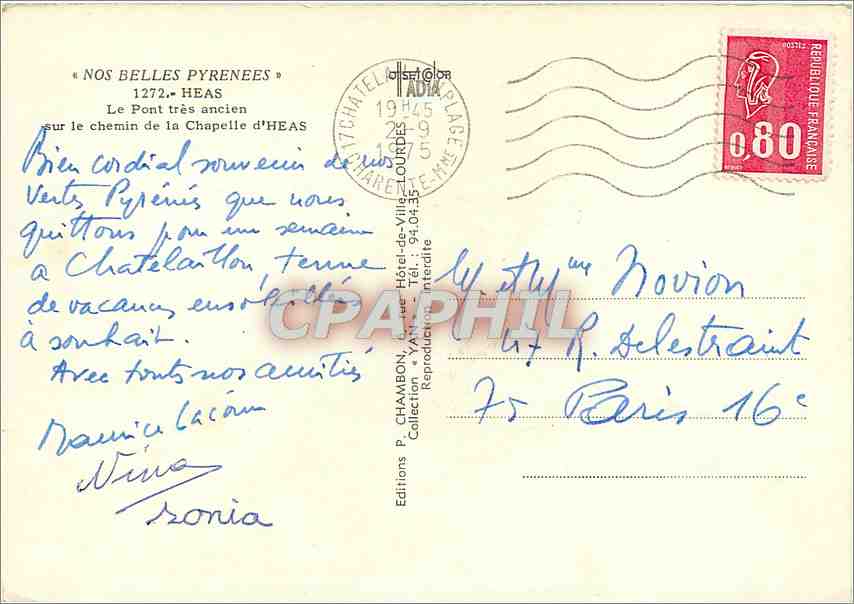 « NOS BELLES PYRENEES »
1272.- HEAS
Le Pont très ancien
sur le chemin de la Chapelle d'HEAS
Bien cordial souvenir de nos
Vertes Pyrénés que nous
quittons pour une semaine
a Chatelaillon, terme
de vacances ensoleillées
à souhait.
Avec toutes nos amitiés
Maurice
Nina
Sonia
OFFSET COLOR
ADIA
17 CHATELAILLON PLAGE
19H45
2-9
1975
CHARENTE-MME
POSTES
REPUBLIQUE FRANÇAISE
0,80
Editions P. CHAMBON, rue Hôtel-de-Ville, LOURDES
Collection « YAN » - Tél. : 94.04.35
Reproduction Interdite
M. et Mme Novion
47 R. Delestraint
75 Paris 16e
CPAPHIL